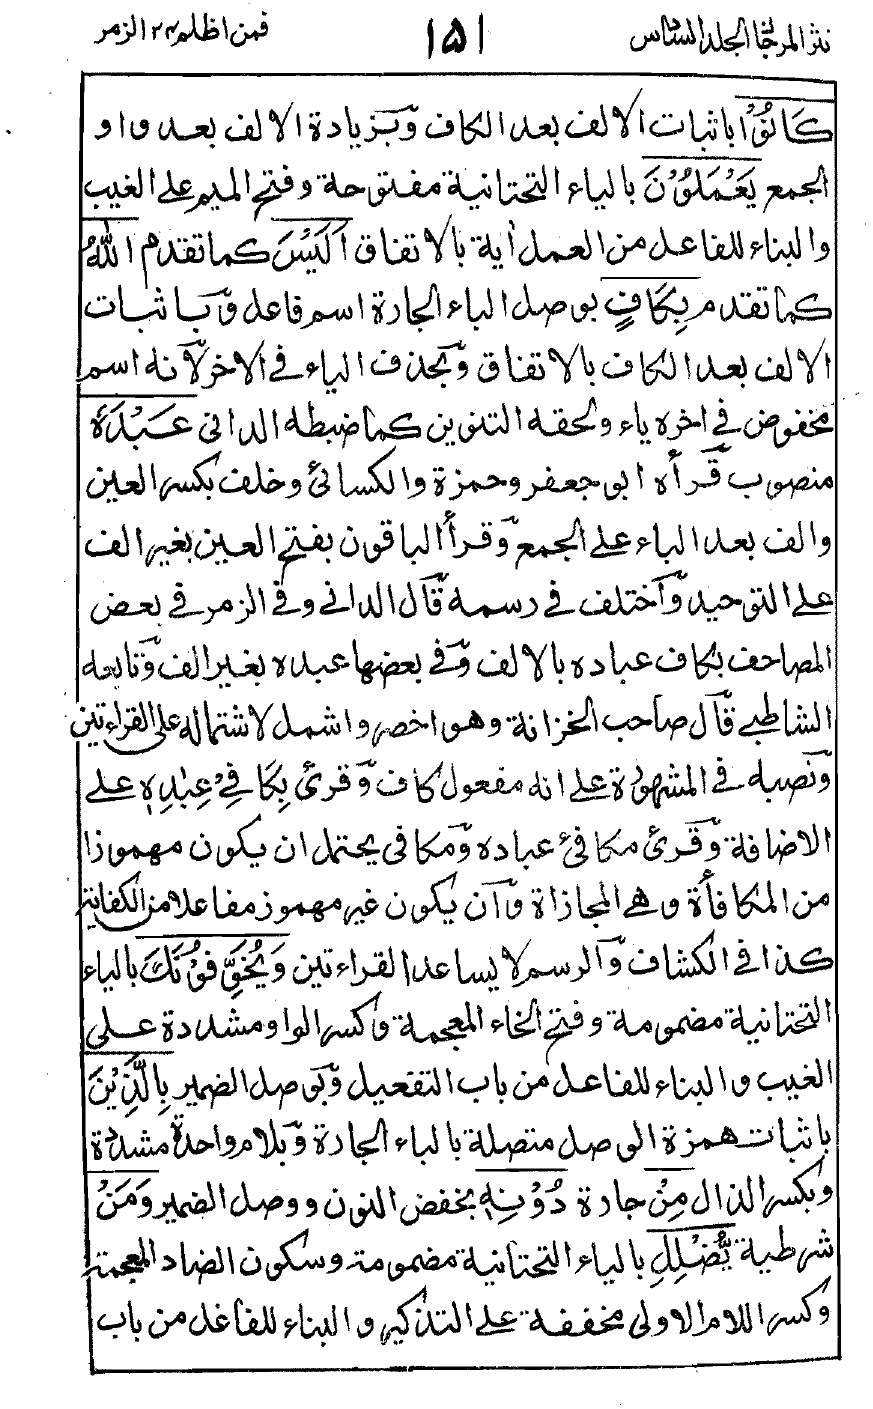 نثر المرجان الجلد السادس ١٥١ فمن اظلم ٢٤ الزمر
كَانُوْا باثبات الالف بعد الكاف وبزيادة الالف بعد واو
الجمع يَعْمَلُوْنَ بالياء التحتانية مفتوحة وفتح الميم على الغيب
والبناء للفاعل من العمل أية بالاتفاق اَلَيْسَ كما تقدم اللّٰهُ
كما تقدم بِكَافٍ بوصل الباء الجارة اسم فاعل وباثبات
الالف بعد الكاف بالاتفاق وبحذف الياء في الاخر لانه اسم
مخفوض في اخره ياء ولحقه التنوين كما ضبطه الداني عَبْدَهٗ
منصوب قرأه ابو جعفر وحمزة والكسائي وخلف بكسر العين
والف بعد الباء على الجمع وقرأ الباقون بفتح العين بغير الف
على التوحيد واختلف في رسمه قال الداني وفي الزمر في بعض
المصاحف بكاف عباده بالالف وفي بعضها عبده بغير الف وتابعه
الشاطبي قال صاحب الخزانة وهو اخصر واشمل لاشتماله على القراءتين
ونصبه في المشهورة على انه مفعول كاف وقرئ بِكَافِيْ عِبَادِهٖ على
الاضافة وقرئ مكافئ عباده ومكافي يحتمل ان يكون مهموزا
من المكافأة وهي المجازاة وان يكون غير مهموز مفاعلا من الكفاية
كذا في الكشاف والرسم لا يساعد القراءتين وَيُخَوِّفُوْنَكَ بالياء
التحتانية مضمومة وفتح الخاء المعجمة وكسر الواو مشددة على
الغيب والبناء للفاعل من باب التفعيل وبوصل الضمير بِالَّذِيْنَ
باثبات همزة الوصل متصلة بالباء الجارة وبلام واحدة مشددة
وبكسر الذال مِنْ جارة دُوْنِهٖ بخفض النون ووصل الضمير وَمَنْ
شرطية يُّضْلِلِ بالياء التحتانية مضمومة وسكون الضاد المعجمة
وكسر اللام الاولى مخففة على التذكير والبناء للفاعل من باب